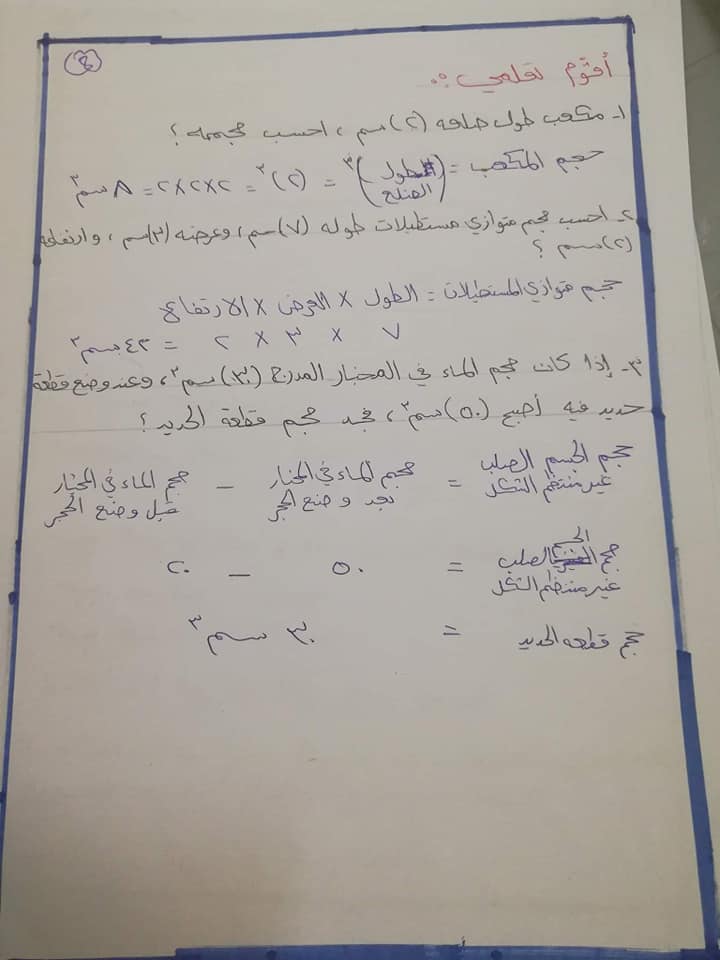 ٤
أقوّم تعلمي :
١- مكعب طول ضلعه (٢) سم ، احسب حجمه ؟
حجم المكعب = (طول الضلع)³ = (٢)³ = ٢×٢×٢ = ٨ سم³
٢- احسب حجم متوازي مستطيلات طوله (٧) سم ، وعرضه (٣) سم ، وارتفاعه
(٢) سم ؟
حجم متوازي المستطيلات = الطول × العرض × الارتفاع
٧ × ٣ × ٢ = ٤٢ سم³
٣- إذا كان حجم الماء في المخبار المدرج (٣٠) سم³ ، وعند وضع قطعة
حديد فيه أصبح (٥٠) سم³ ، فجد حجم قطعة الحديد ؟
حجم الجسم الصلب غير منتظم الشكل = حجم الماء في المخبار بعد وضع الحجر – حجم الماء في المخبار قبل وضع الحجر
حجم الجسم الصلب غير منتظم الشكل = ٥٠ – ٢٠
حجم قطعة الحديد = ٣٠ سم³